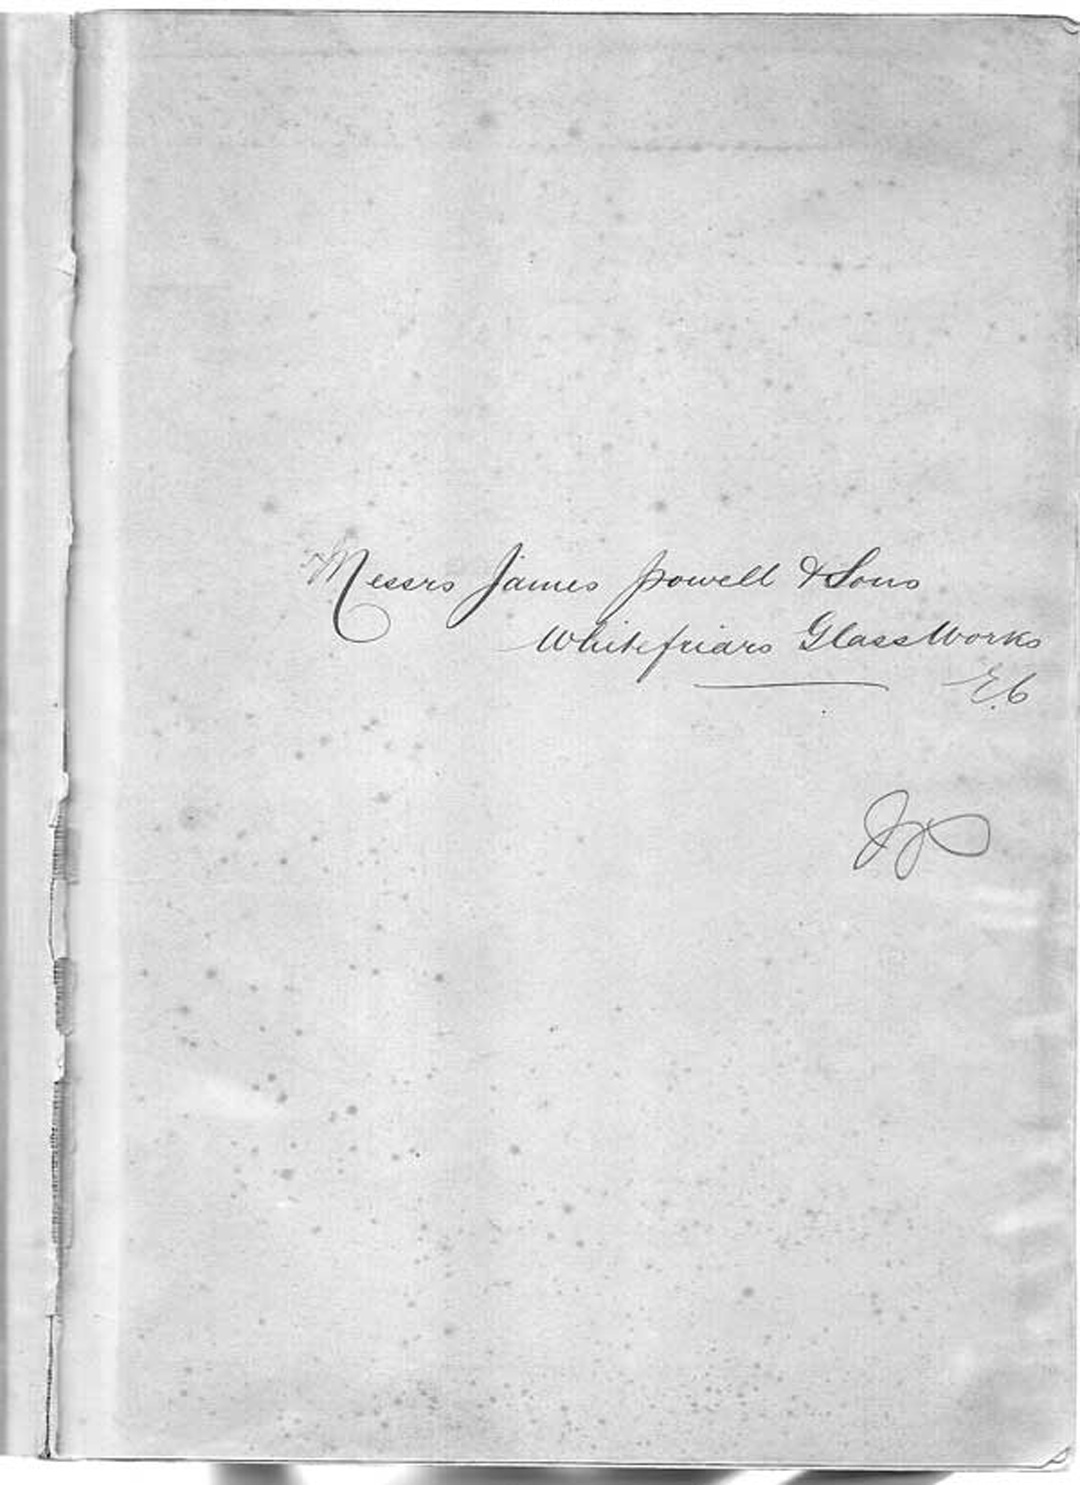 Messrs James Powell & Sons
Whitefriars Glass Works
E.C